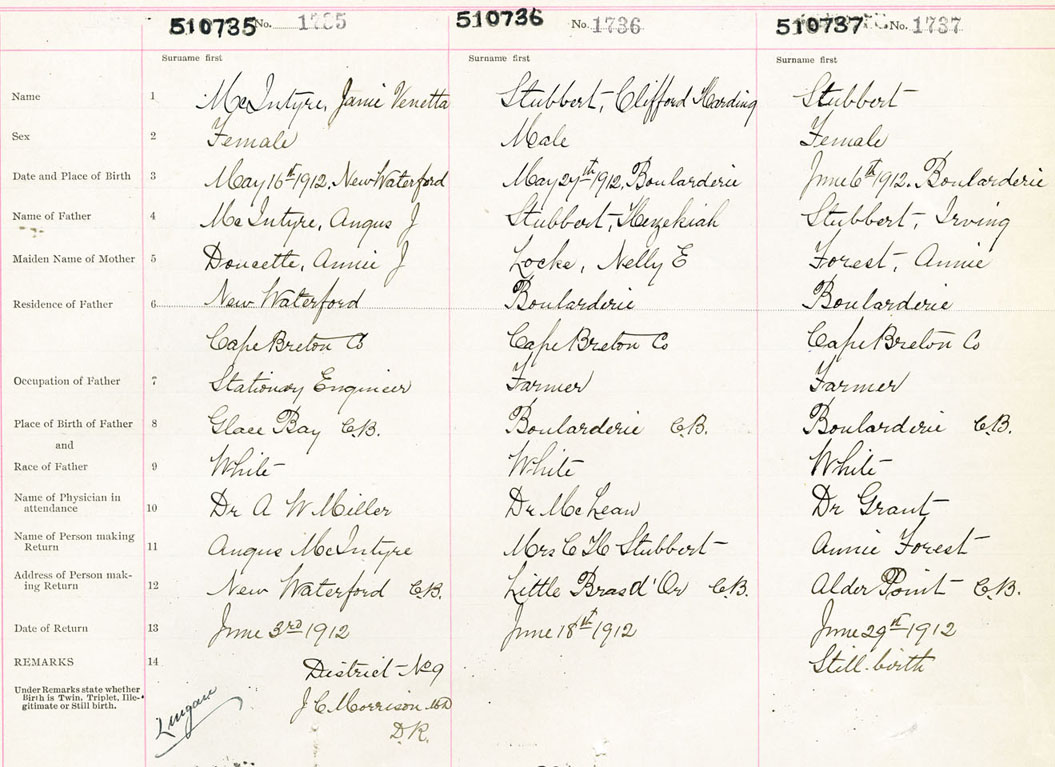 510735 No. 1735 510736 No. 1736 510737 No. 1737
Surname first Surname first Surname first
Name 1 McIntyre, Janie Venetta Stubbert, Clifford Harding Stubbert
Sex 2 Female Male Female
Date and Place of Birth 3 May 16th 1912, New Waterford May 27th 1912, Boularderie June 6th 1912. Boularderie
Name of Father 4 McIntyre, Angus J Stubbert, Hezekiah Stubbert, Irving
Maiden Name of Mother 5 Doucette, Annie J Locke, Nelly E Forest, Annie
Residence of Father 6 New Waterford Boularderie Boularderie
Cape Breton Co Cape Breton Co Cape Breton Co
Occupation of Father 7 Stationary Engineer Farmer Farmer
Place of Birth of Father 8 Glace Bay C.B. Boularderie C.B. Boularderie C.B.
and
Race of Father 9 White White White
Name of Physician in
attendance 10 Dr A W Miller Dr McLean Dr Grant
Name of Person making
Return 11 Angus McIntyre Mrs C H Stubbert Annie Forest
Address of Person mak-
ing Return 12 New Waterford C.B. Little Bras d'Or C.B. Alder Point C.B.
Date of Return 13 June 3rd 1912 June 18th 1912 June 29th 1912
REMARKS 14 District No 9 Still birth
Under Remarks state whether
Birth is Twin, Triplet, Ille-
gitimate or Still birth.
Lingan J C Morrison MD
D.R.